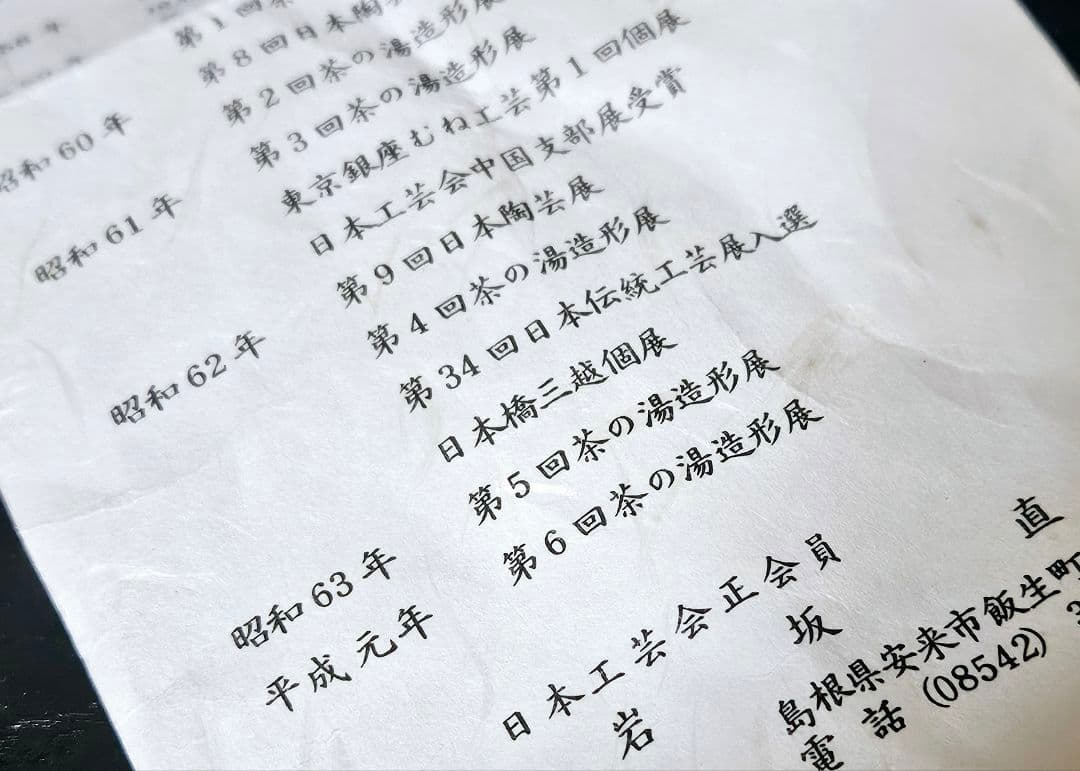 第1回茶
昭和60年 第8回日本陶芸
第2回茶の湯造形展
昭和61年 第3回茶の湯造形展
東京銀座むね工芸第1回個展
日本工芸会中国支部展受賞
昭和62年 第9回日本陶芸展
第4回茶の湯造形展
第34回日本伝統工芸展入選
日本橋三越個展
昭和63年 第5回茶の湯造形展
平成元年 第6回茶の湯造形展
日本工芸会正会員
岩坂直
島根県安来市飯生町
電話(08542)